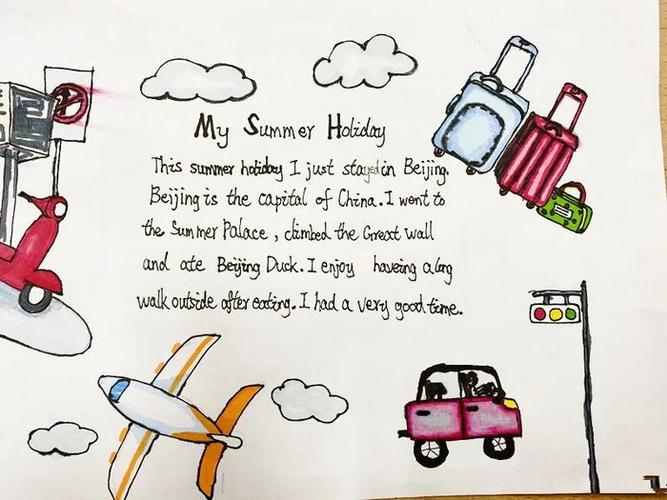 My Summer Holiday
This summer holiday I just stayed in Beijing.
Beijing is the capital of China. I went to
the Summer Palace, climbed the Great Wall
and ate Beijing Duck. I enjoy haveing a long
walk outside after eating. I had a very good time.